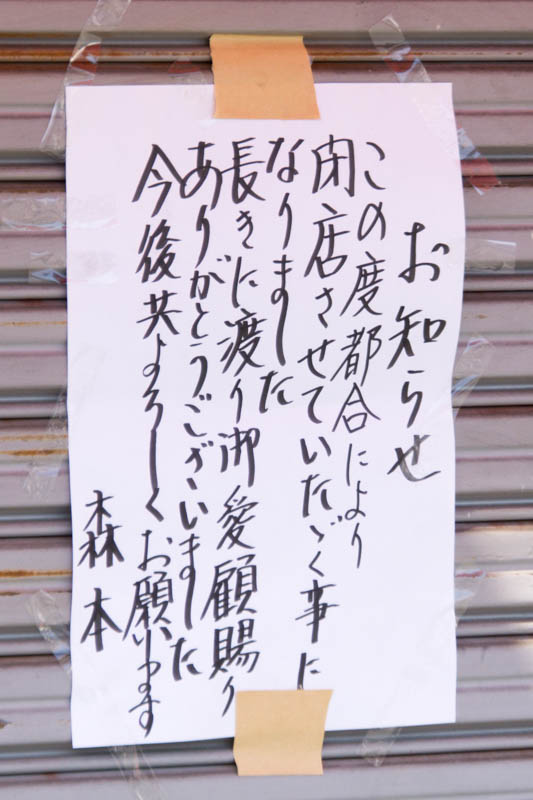 お知らせ
この度都合により
閉店させていたゞく事に
なりました
長きに渡り御愛顧賜り
ありがとうございました
今後共よろしくお願います
森本